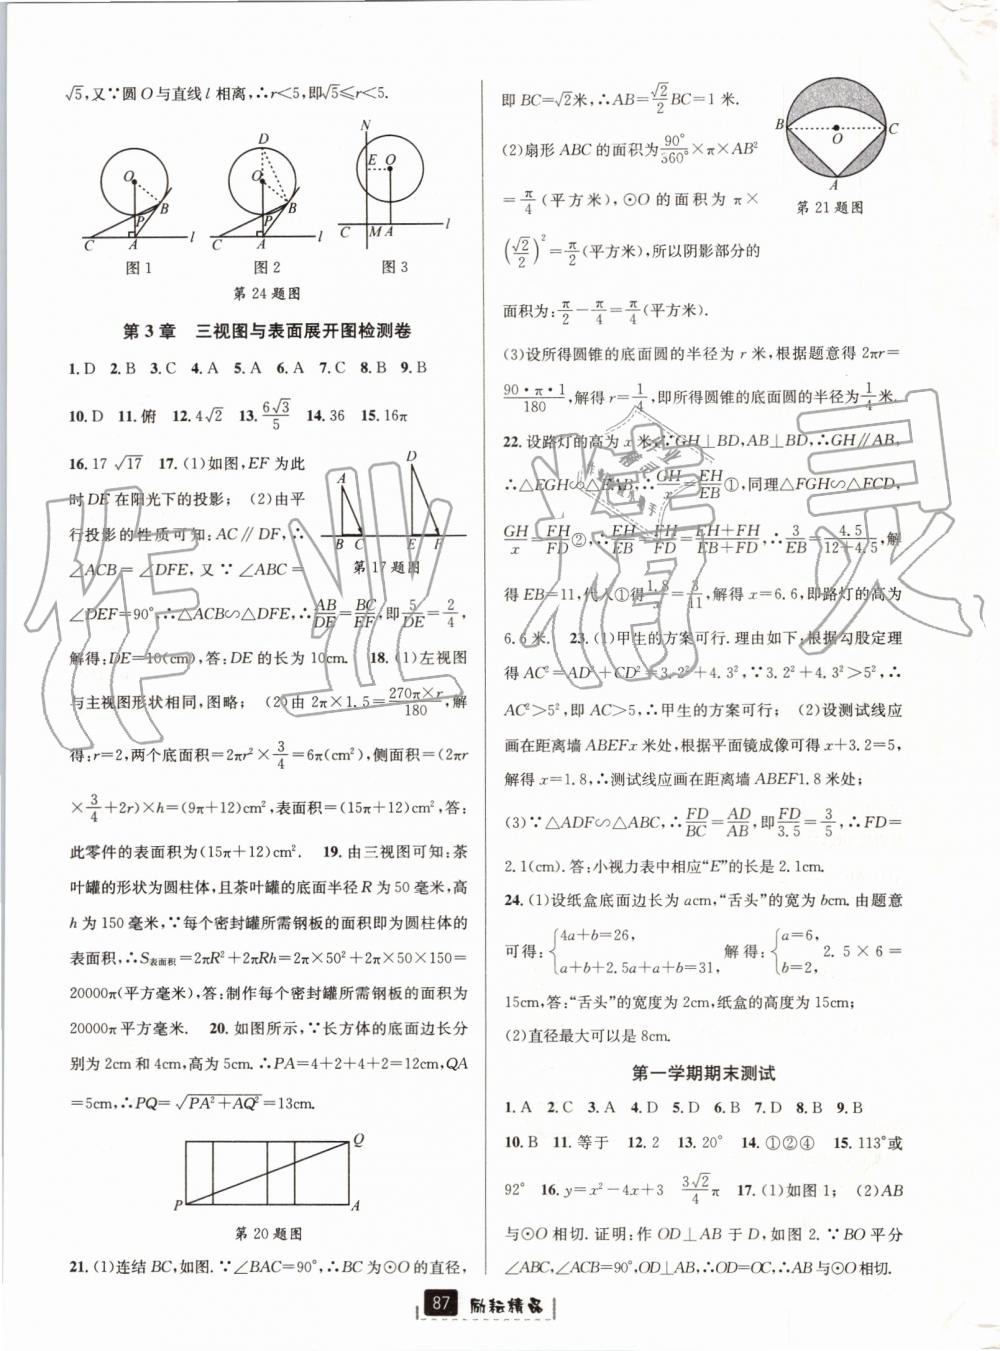 √5,又∵圆O与直线l相离,∴r<5,即√5≤r<5.
O B P C A l
图1
D O B P C A l
图2
N E O C M A l
图3
第24题图
第3章 三视图与表面展开图检测卷
1.D 2.B 3.C 4.A 5.A 6.A 7.C 8.B 9.B
10.D 11.俯 12.4√2 13.6√3/5 14.36 15.16π
16.17 √17 17.(1)如图,EF为此
时DE在阳光下的投影; (2)由平
行投影的性质可知:AC∥DF,∴
∠ACB=∠DFE,又∵∠ABC=
A B C D E F
第17题图
∠DEF=90°,∴△ACB∽△DFE,∴AB/DE=BC/EF,即5/DE=2/4,
解得:DE=10(cm),答:DE的长为10cm. 18.(1)左视图
与主视图形状相同,图略; (2)由2π×1.5=270π×r/180,解
得:r=2,两个底面积=2πr²×3/4=6π(cm²),侧面积=(2πr
×3/4+2r)×h=(9π+12)cm²,表面积=(15π+12)cm²,答:
此零件的表面积为(15π+12)cm². 19.由三视图可知:茶
叶罐的形状为圆柱体,且茶叶罐的底面半径R为50毫米,高
h为150毫米,∵每个密封罐所需钢板的面积即为圆柱体的
表面积,∴S表面积=2πR²+2πRh=2π×50²+2π×50×150=
20000π(平方毫米),答:制作每个密封罐所需钢板的面积为
20000π平方毫米. 20.如图所示,∵长方体的底面边长分
别为2cm和4cm,高为5cm.∴PA=4+2+4+2=12cm,QA
=5cm,∴PQ=√(PA²+AQ²)=13cm.
Q P A
第20题图
21.(1)连结BC,如图.∵∠BAC=90°,∴BC为⊙O的直径,
即BC=√2米,∴AB=√2/2BC=1米.
(2)扇形ABC的面积为90°/360°×π×AB²
=π/4(平方米),⊙O的面积为π×
(√2/2)²=π/2(平方米),所以阴影部分的
B O C A
第21题图
面积为:π/2-π/4=π/4(平方米).
(3)设所得圆锥的底面圆的半径为r米,根据题意得2πr=
90·π·1/180,解得r=1/4,即所得圆锥的底面圆的半径为1/4米.
22.设路灯的高为x米,∵GH⊥BD,AB⊥BD,∴GH∥AB,
∴△EGH∽△EAB,∴GH/x=EH/EB①,同理△FGH∽△FCD,
GH/x=FH/FD②,∴EH/EB=FH/FD=EH+FH/EB+FD,∴3/EB=4.5/12+4.5,解
得EB=11,代入①得1.8/x=3/11,解得x=6.6,即路灯的高为
6.6米. 23.(1)甲生的方案可行.理由如下:根据勾股定理
得AC²=AD²+CD²=3.2²+4.3²,∵3.2²+4.3²>5²,∴
AC²>5²,即AC>5,∴甲生的方案可行; (2)设测试线应
画在距离墙ABEFx米处,根据平面镜成像可得x+3.2=5,
解得x=1.8,∴测试线应画在距离墙ABEF1.8米处;
(3)∵△ADF∽△ABC,∴FD/BC=AD/AB,即FD/3.5=3/5,∴FD=
2.1(cm).答:小视力表中相应“E”的长是2.1cm.
24.(1)设纸盒底面边长为acm,“舌头”的宽为bcm.由题意
可得:{4a+b=26, a+b+2.5a+a+b=31, 解得:{a=6, b=2, 2.5×6=
15cm,答:“舌头”的宽度为2cm,纸盒的高度为15cm;
(2)直径最大可以是8cm.
第一学期期末测试
1.A 2.C 3.A 4.D 5.D 6.B 7.D 8.B 9.B
10.B 11.等于 12.2 13.20° 14.①②④ 15.113°或
92° 16.y=x²-4x+3 3√2/4π 17.(1)如图1; (2)AB
与⊙O相切.证明:作OD⊥AB于D,如图2.∵BO平分
∠ABC,∠ACB=90°,OD⊥AB,∴OD=OC,∴AB与⊙O相切.
87 励耘精品
作业精灵